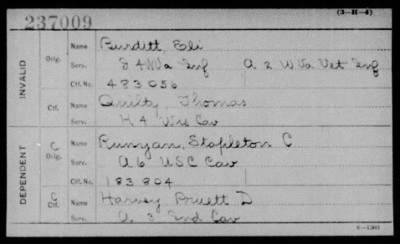 (3-H-4)
237009
INVALID
Orig.
Name Burditt, Eli
Serv. D 4 W Va Inf A 2 W Va Vet Inf
Ctf. No. 483056
Ctf.
Name Quilty, Thomas
Serv. K 4 Wis Cav
DEPENDENT
C
Orig.
Name Runyan, Stapleton C
Serv. A 6 USC Cav
Ctf. No. 183804
C
Ctf.
Name Harvey Pruett D
Serv. A 3 Ind Cav
6-1301